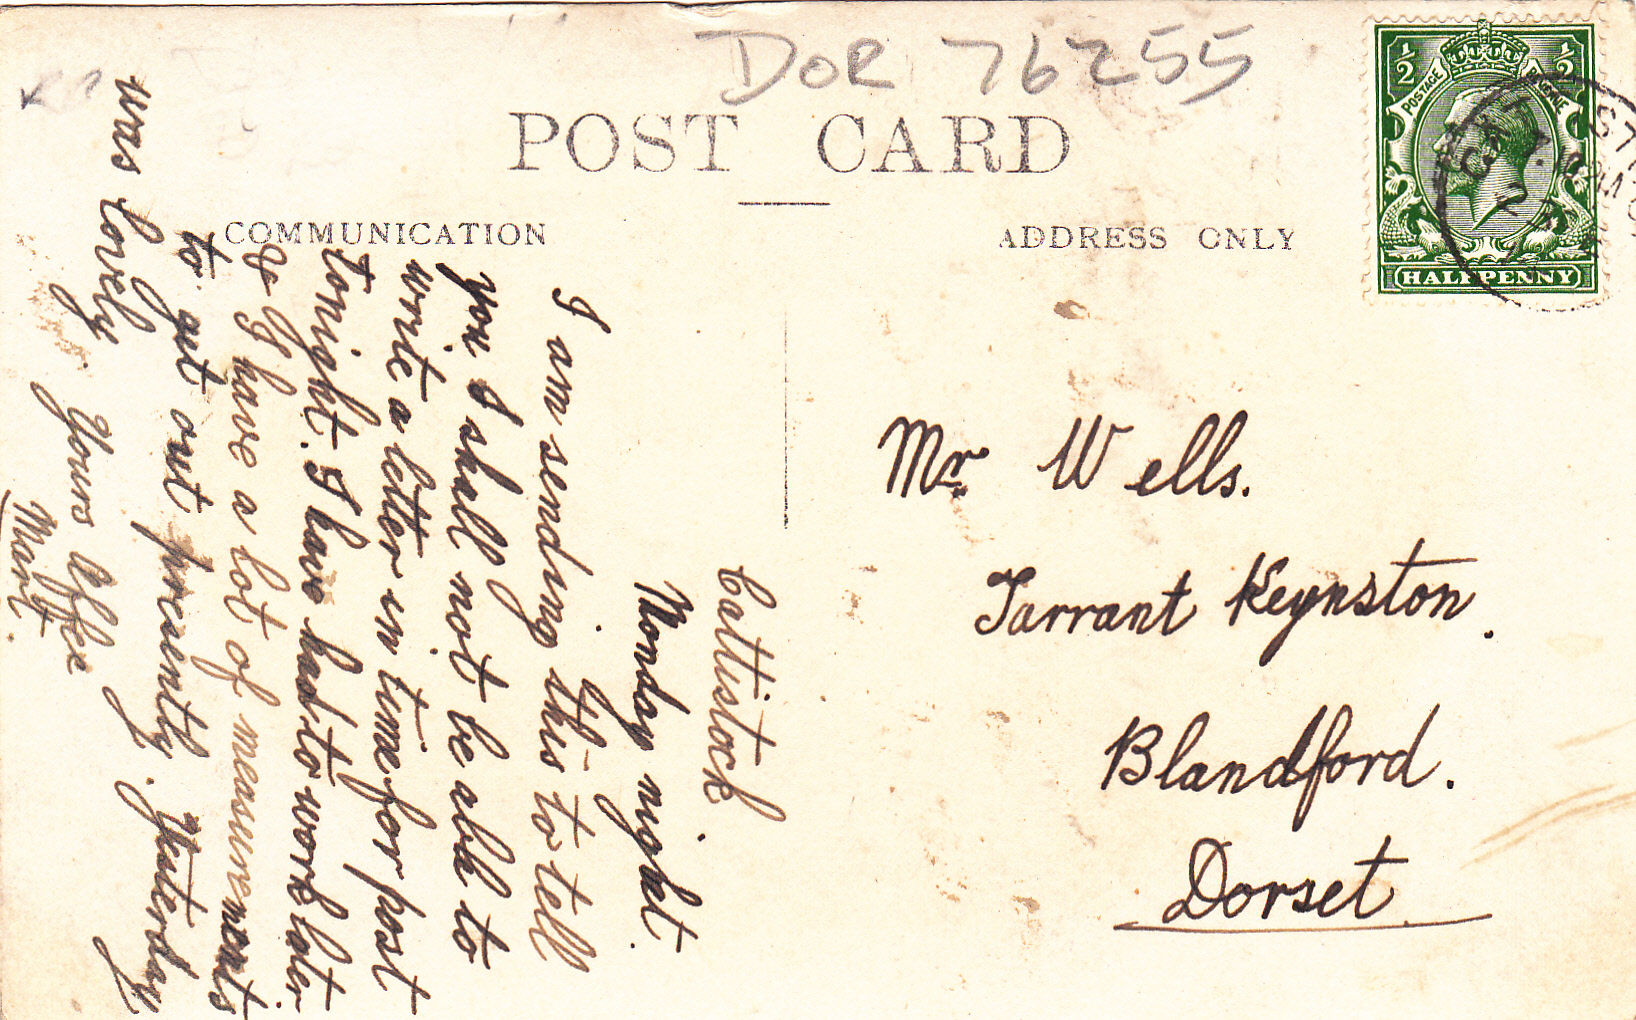 DOR 76255
POST CARD
COMMUNICATION
ADDRESS ONLY
½ ½
POSTAGE REVENUE
HALFPENNY
Cattistock
Monday night.
I am sending this to tell
you I shall not be able to
write a letter in time for post
tonight. I have had to work later
& I have a lot of measurements
to get out presently. Yesterday
was lovely. Yours affec
Mart.
Mr. Wells.
Tarrant Keynston.
Blandford.
Dorset.